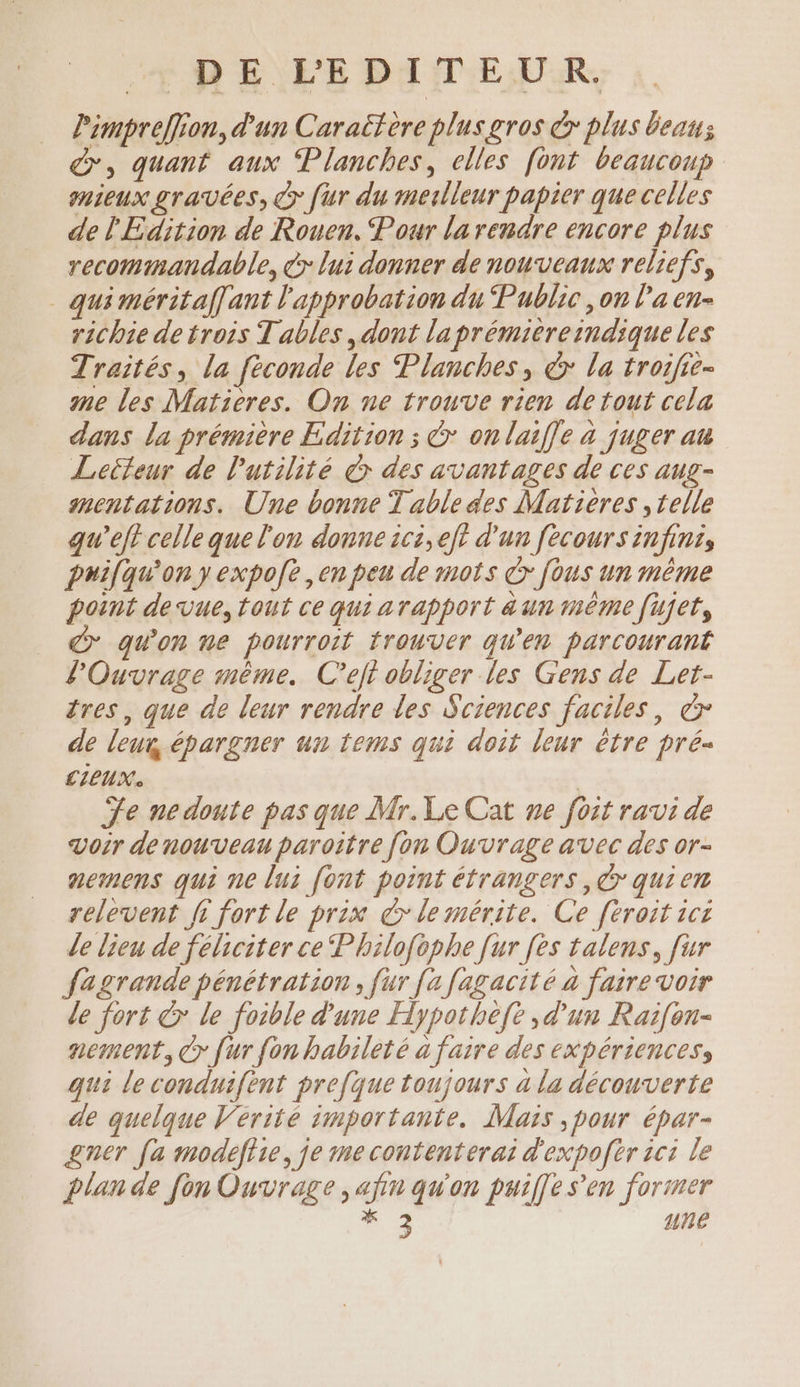 DE L'EDITEUR.
l'impreſſion, d'un Caractère plus gros & plus beau;
&, quant aux Planches, elles ſont beaucoup
mieux gravées, & ſur du meilleur papier que celles
de l'Edition de Rouen. Pour la rendre encore plus
recommandable, & lui donner de nouveaux reliefs,
qui méritaſſant l'approbation du Public, on l'a en-
richie de trois Tables, dont la prémière indique les
Traités, la ſeconde les Planches, & la troiſiè-
me les Matières. On ne trouve rien de tout cela
dans la prémière Edition; & on laiſſe à juger au
Lecteur de l'utilité & des avantages de ces aug-
mentations. Une bonne Table des Matières, telle
qu'eſt celle que l'on donne ici, eſt d'un ſecours infini,
puiſqu'on y expoſe, en peu de mots & ſous un même
point de vue, tout ce qui a rapport à un même ſujet,
& qu'on ne pourroit trouver qu'en parcourant
l'Ouvrage même. C'eſt obliger les Gens de Let-
tres, que de leur rendre les Sciences faciles, &
de leur épargner un tems qui doit leur être pré-
cieux.
Je ne doute pas que Mr. Le Cat ne ſoit ravi de
voir de nouveau paroitre ſon Ouvrage avec des or-
nemens qui ne lui ſont point étrangers, & qui en
relèvent ſi fort le prix & le mérite. Ce ſeroit ici
le lieu de féliciter ce Philoſophe ſur ſes talens, ſur
ſa grande pénétration, ſur ſa ſagacité à faire voir
le fort & le foible d'une Hypothèſe, d'un Raiſon-
nement, & ſur ſon habileté à faire des expériences,
qui le conduiſent preſque toujours à la découverte
de quelque Vérité importante. Mais, pour épar-
gner ſa modeſtie, je me contenterai d'expoſer ici le
plan de ſon Ouvrage, afin qu'on puiſſe s'en former
* 3 une